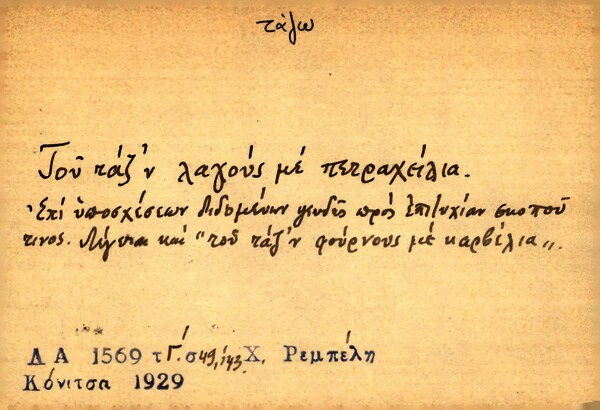 τάζω
Τοῦ τάζ'ν λαγούς μέ πετραχείλια.
Ἐπί ὑποσχέσεων διδομένων ψευδῶς πρός ἐπιτυχίαν σκοποῦ
τινος. Λέγεται καί "τοῦ τάζ'ν φούρνους μέ καρβέλια".
Λ Α 1569 τ Γ΄. σ 49, 143 Χ. Ρεμπέλη
Κόνιτσα 1929